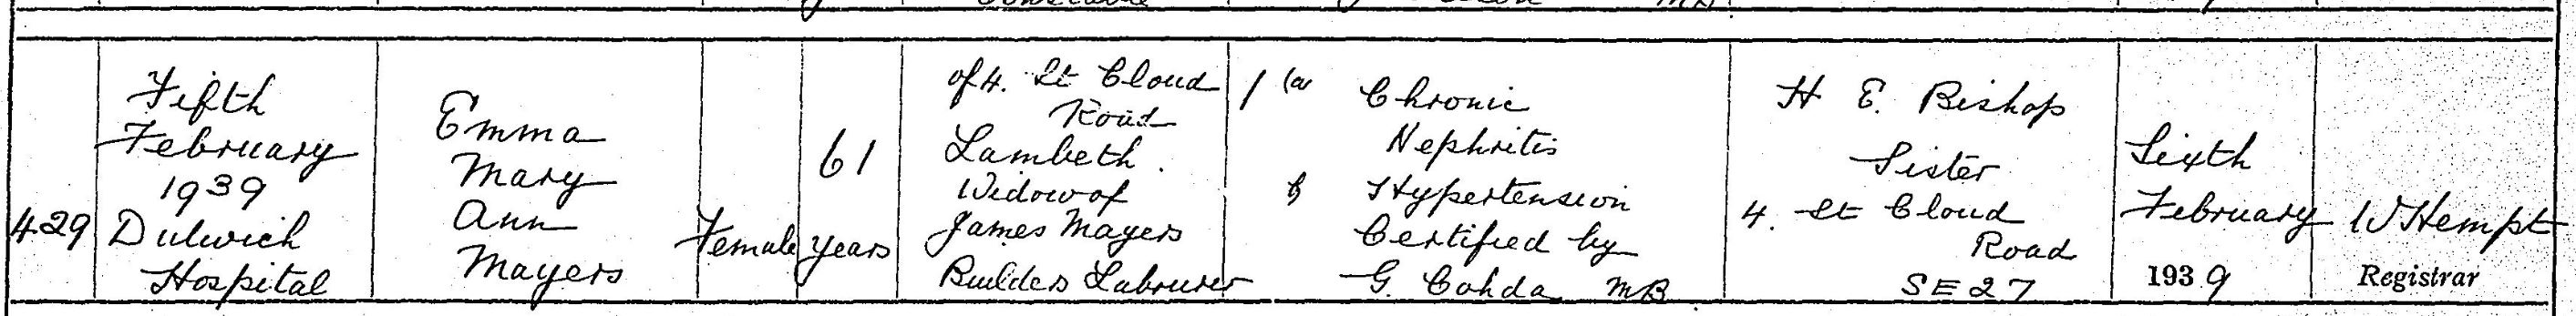 429
Fifth
February
1939
Dulwich
Hospital
Emma
Mary
Ann
Mayers
Female
61
years
of 4. St Cloud
Road
Lambeth.
Widow of
James Mayers
Builders Labourer
1 (a Chronic
Nephritis
b Hypertension
Certified by
G. MB
H E. Bishop
Sister
4. St Cloud
Road
SE27
Sixth
February
1939
W Hempt
Registrar